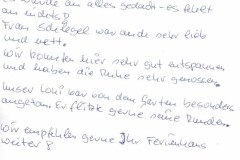 wurde an alles gedacht - es fehlt
an nichts!
Frau Schlegel war auch sehr lieb
und nett.
Wir konnten hier sehr gut entspannen
und haben die Ruhe sehr genossen.
Unser Loui war von dem Garten besonders
angetan. Er flitzte gerne seine Runden.
Wir empfehlen gerne Ihr Ferienhaus
weiter!